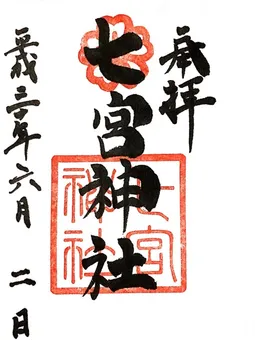 奉拝
七宮神社
七宮
神社
平成三十年六月二日